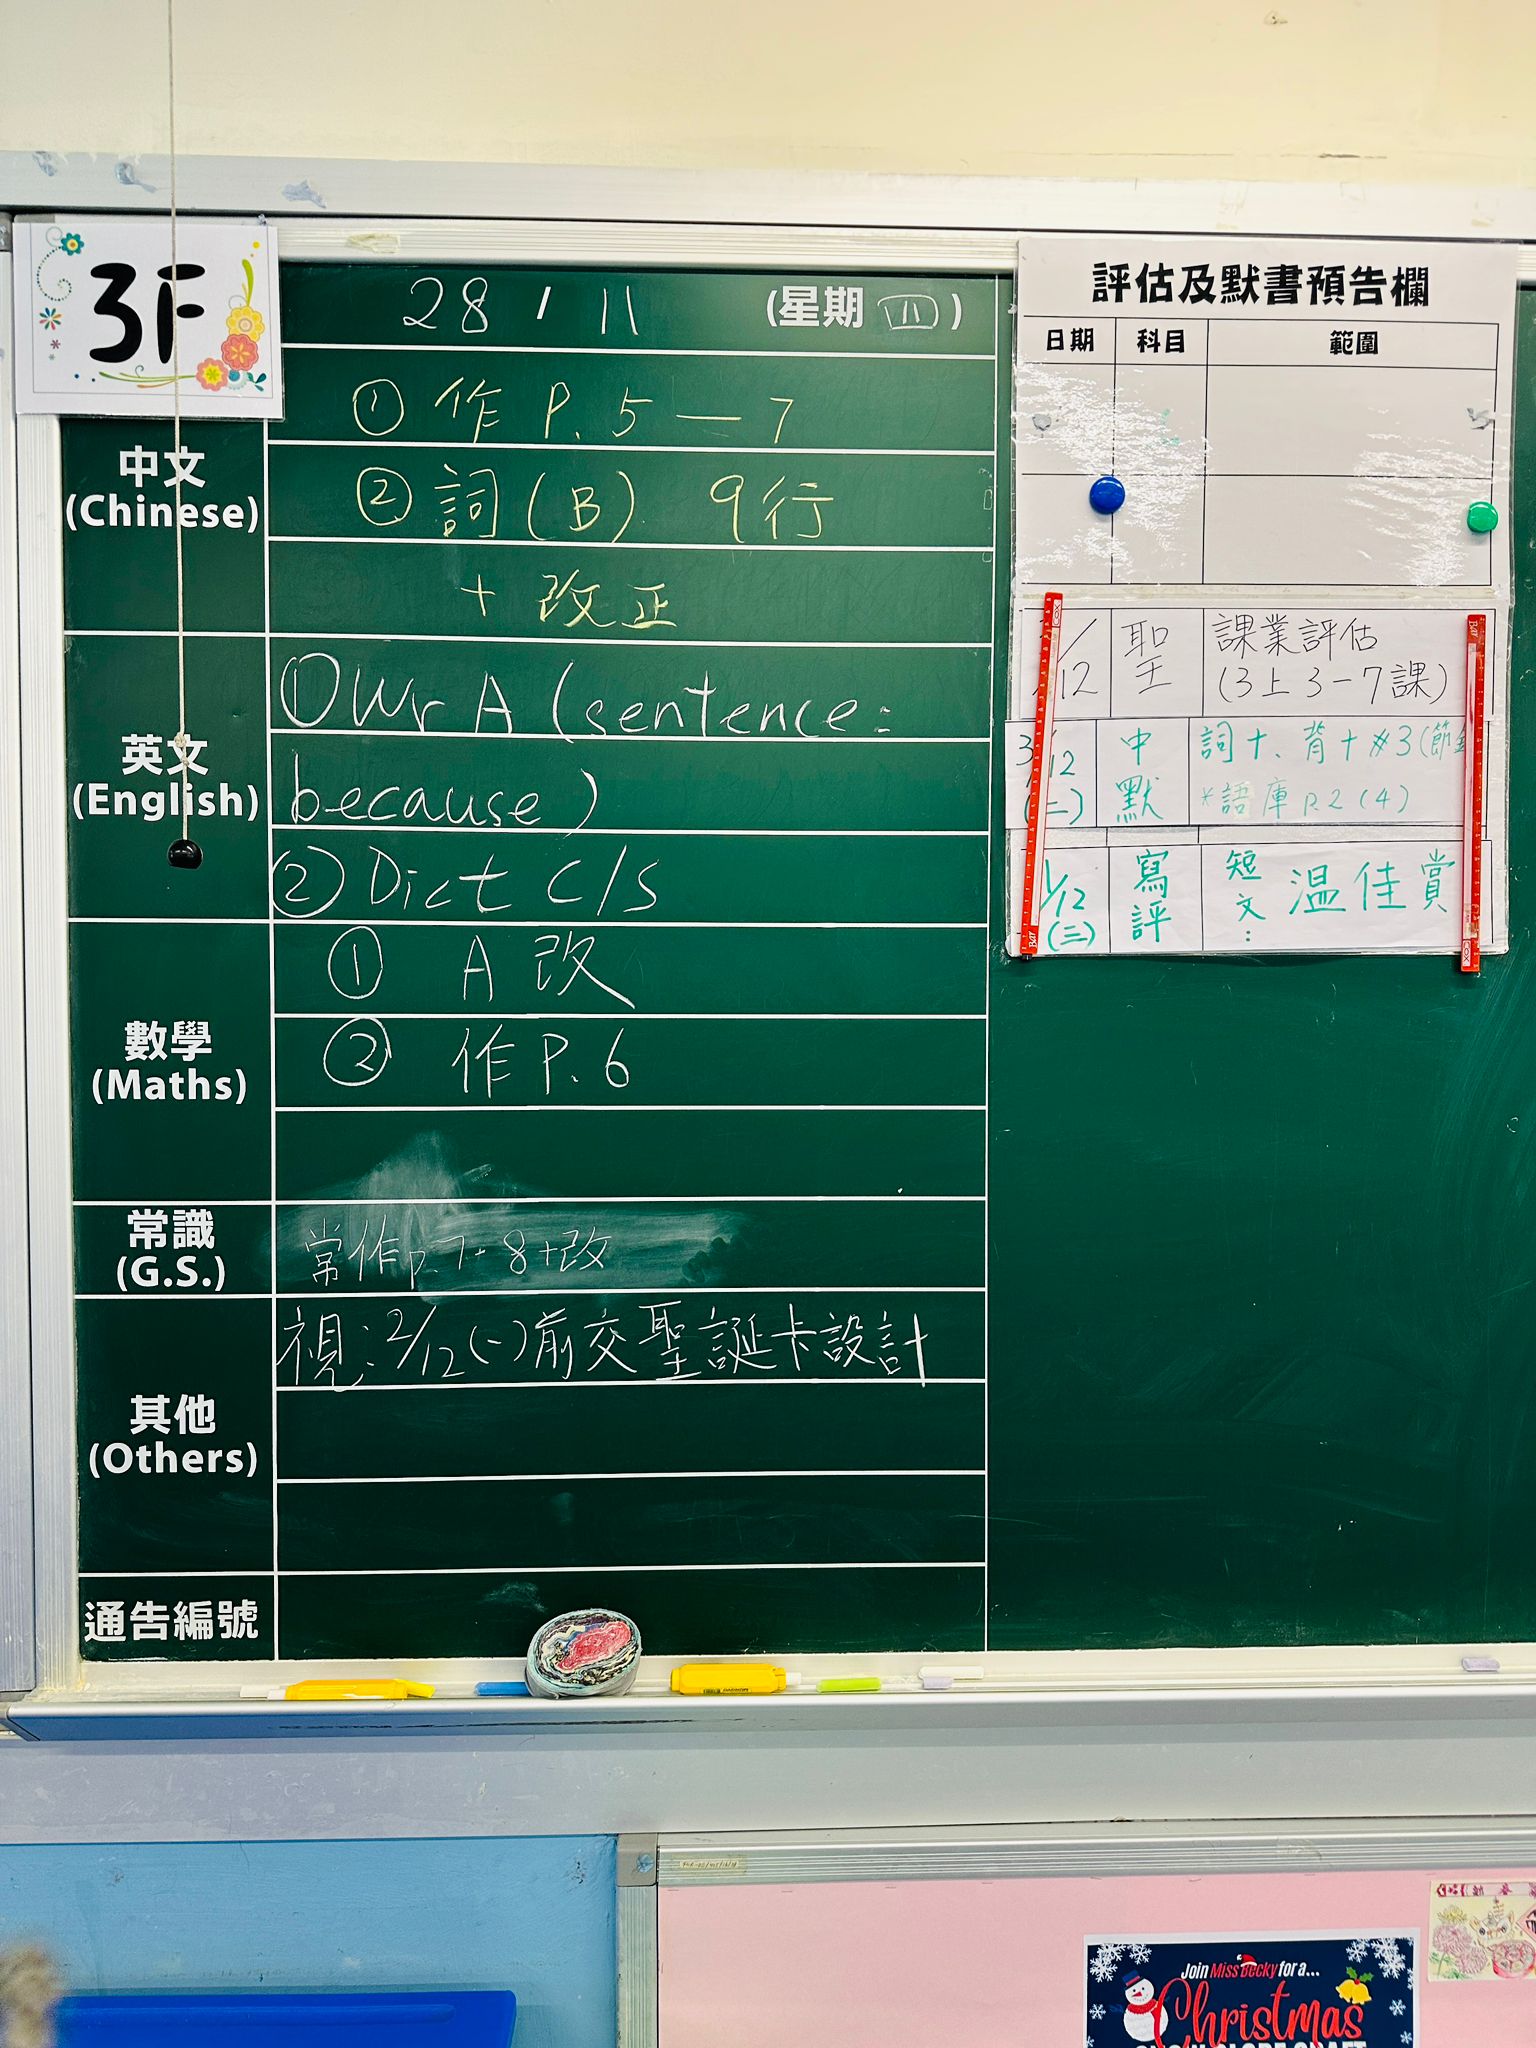 3F
28 / 11 (星期 四)
中文
(Chinese)
① 作 P. 5 — 7
② 詞 (B) 9行
+ 改正
英文
(English)
① Wr A (sentence:
because)
② Dict C/S
數學
(Maths)
① A 改
② 作 P. 6
常識
(G.S.)
常作p. 7-8+改
其他
(Others)
視: 2/12 (一) 前交聖誕卡設計
通告編號
評估及默書預告欄
日期 科目 範圍
/12 聖 課業評估
(3上 3-7課)
3/12 中默 詞十、背十 #3 (節
(二) *語庫 p.2 (4)
/12 (三) 寫評 短文: 溫佳賞
Join Miss Becky for a...
Christmas